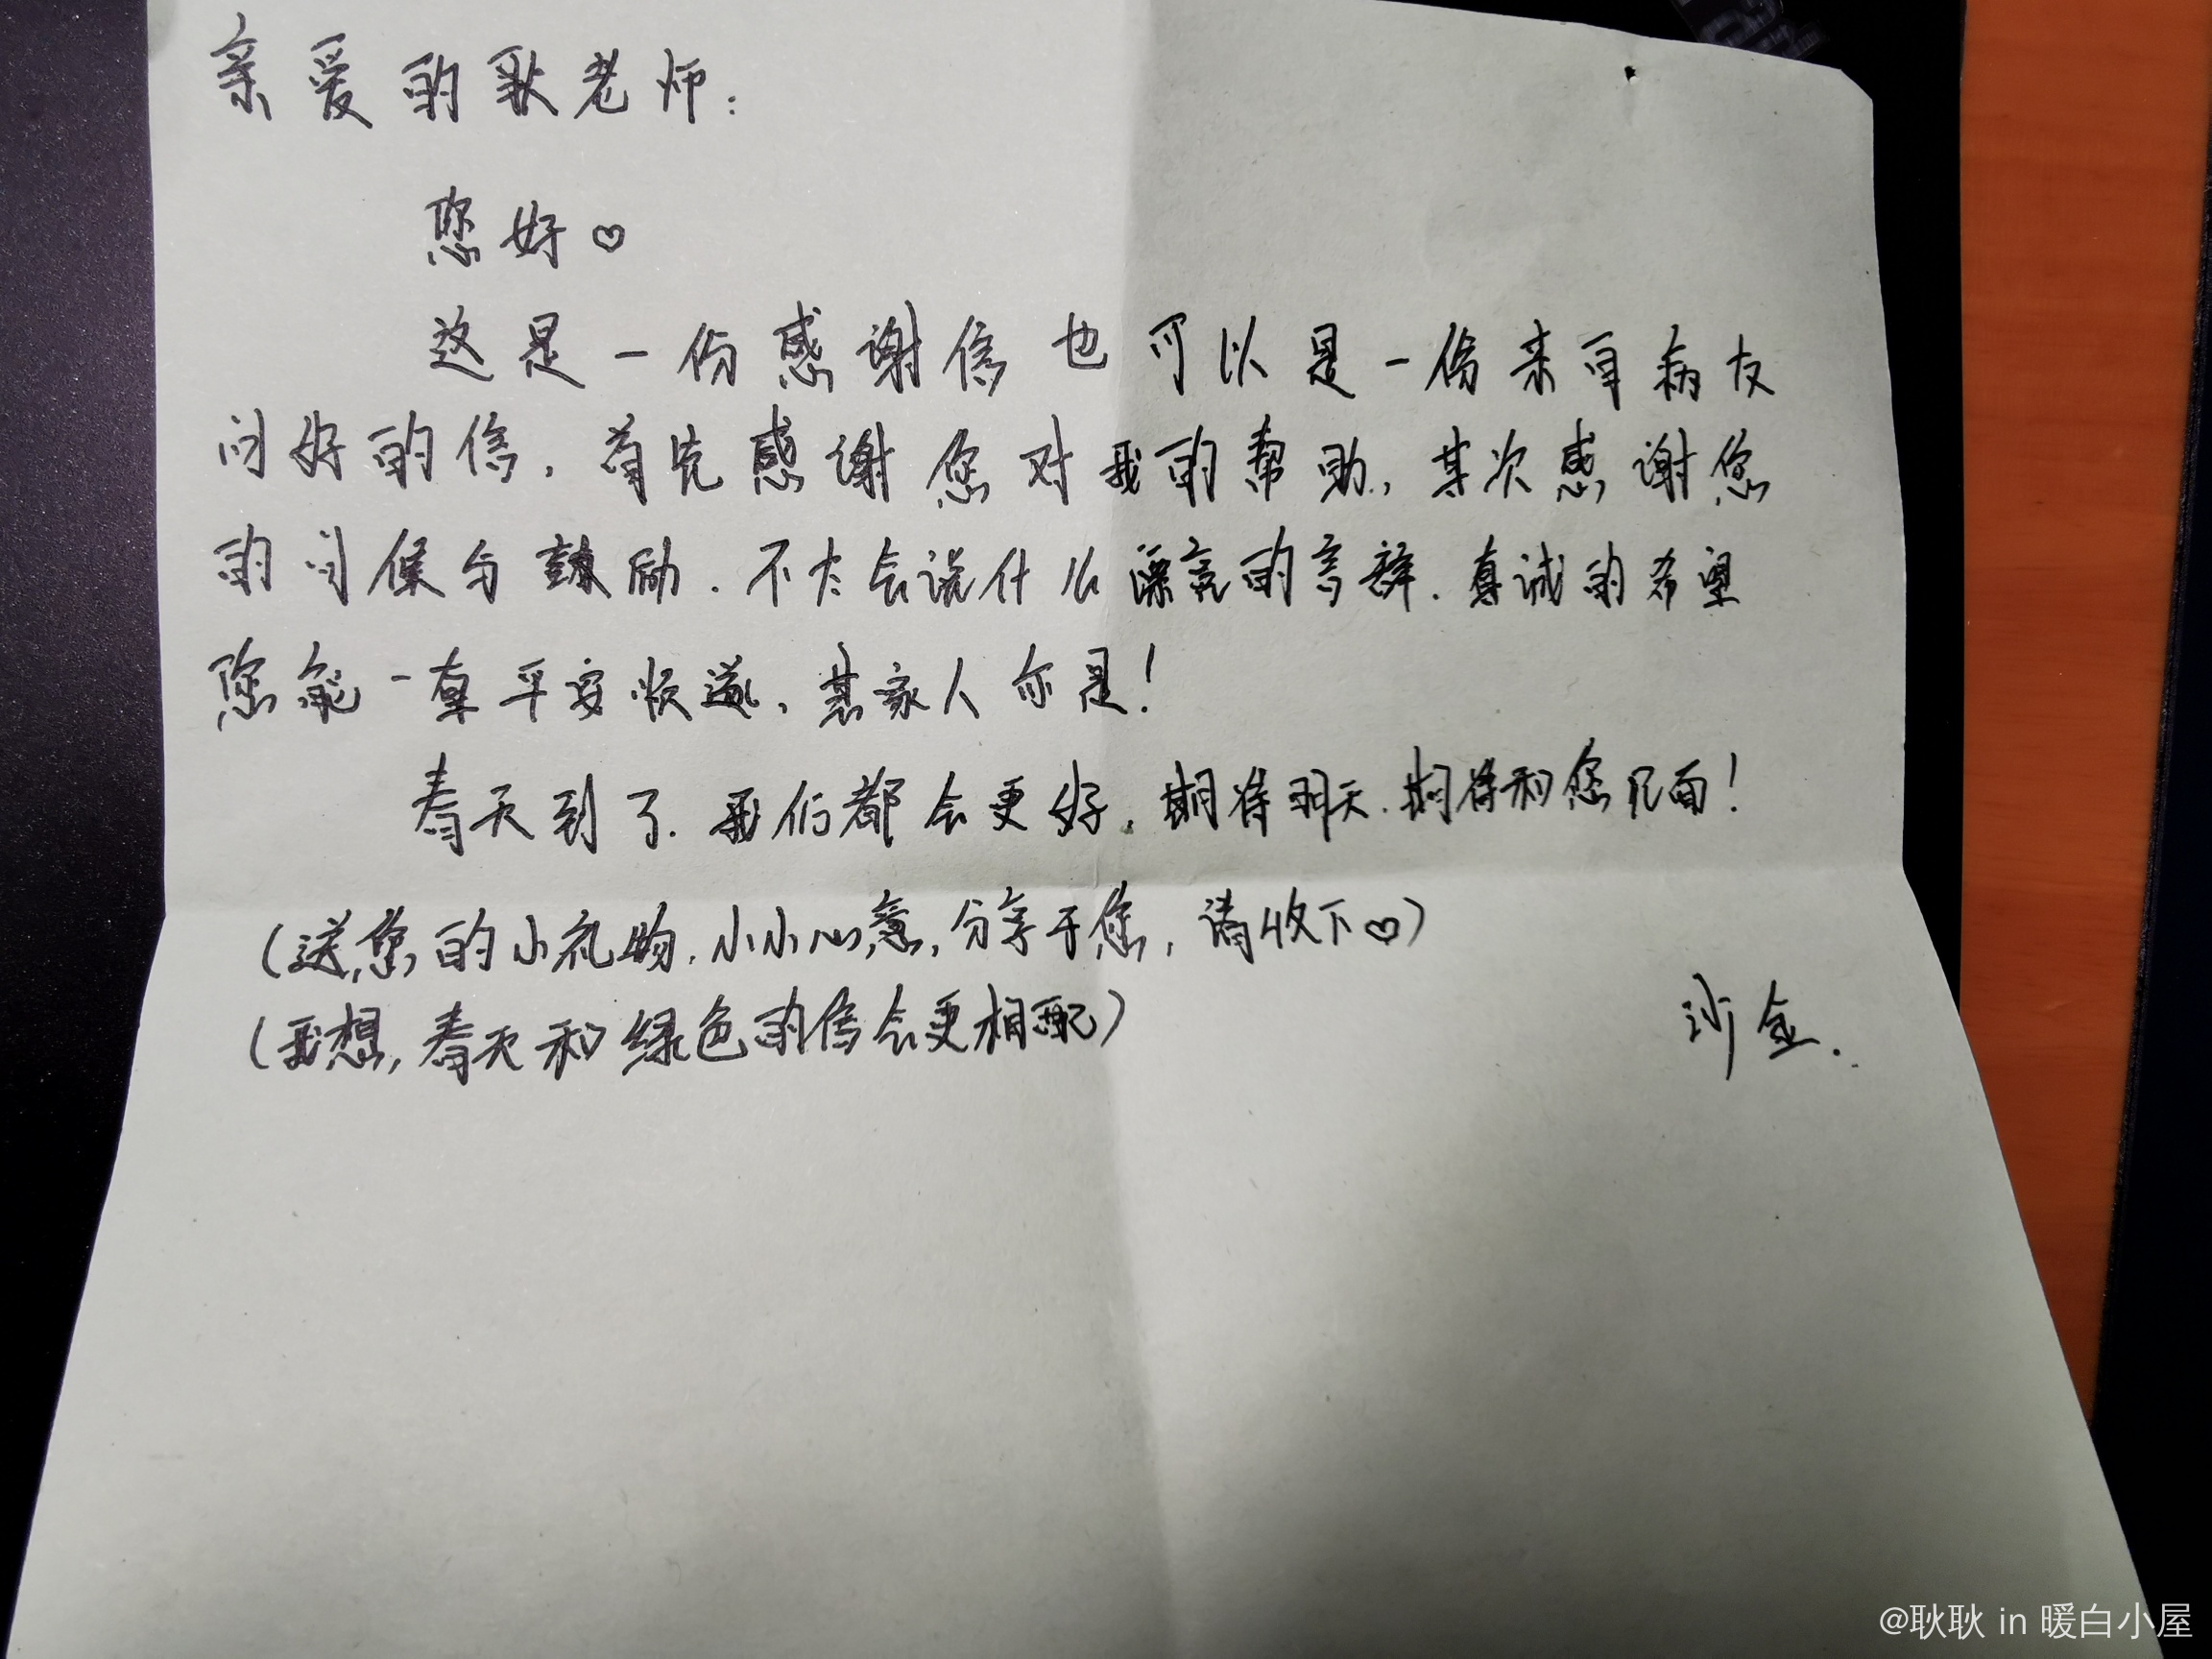 亲爱的歌老师：
您好♡
这是一份感谢信也可以是一份来自病友
问好的信，首先感谢您对我的帮助，其次感谢您
的问候与鼓励．不太会说什么漂亮的言辞．真诚的希望
您能一直平安顺遂，其家人亦是！
春天到了．我们都会更好．期待明天．期待和您见面！
（送您的小礼物，小小心意，分享于您，请收下♡）
（我想，春天和绿色的信会更相配）
沙金．
@耿耿 in 暖白小屋